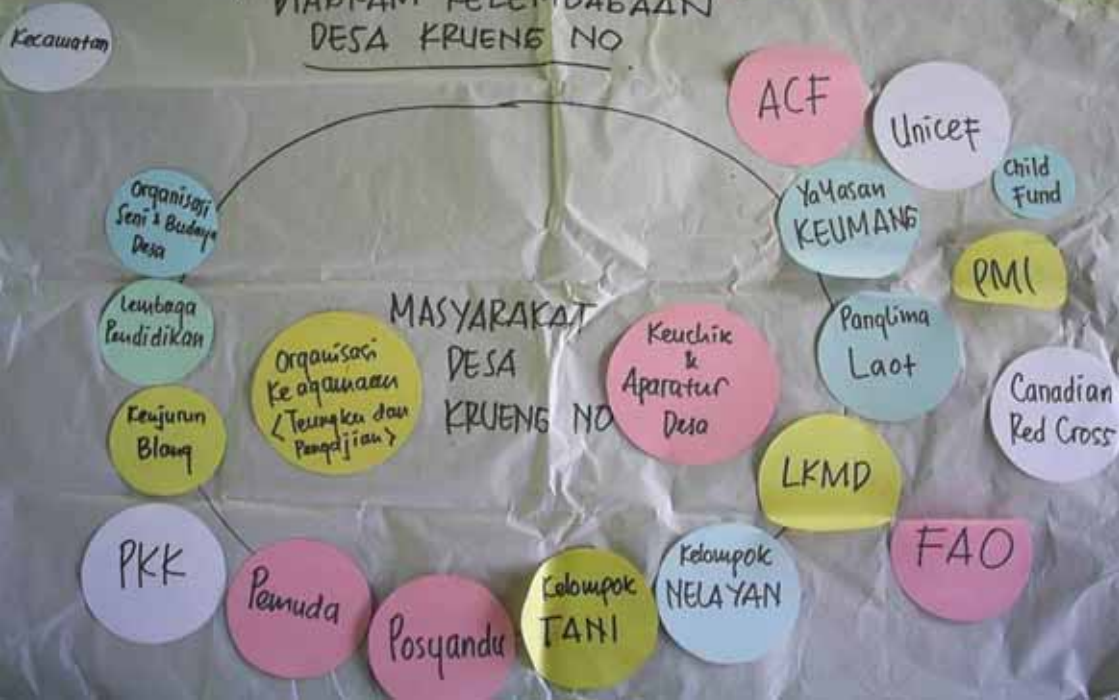 DIAGRAM KELEMBAGAAN
DESA KRUENG NO
Kecamatan
ACF
Unicef
Child
Fund
Organisasi
Seni & Budaya
Desa
Yayasan
KEUMANG
PMI
Lembaga
Pendidikan
MASYARAKAT
DESA
KRUENG NO
Organisasi
Keagamaan
(Teungku dan
Pengdjian)
Keuchik
&
Aparatur
Desa
Panglima
Laot
Canadian
Red Cross
Keujurun
Blang
LKMD
PKK
Pemuda
Posyandu
Kelompok
TANI
Kelompok
NELAYAN
FAO